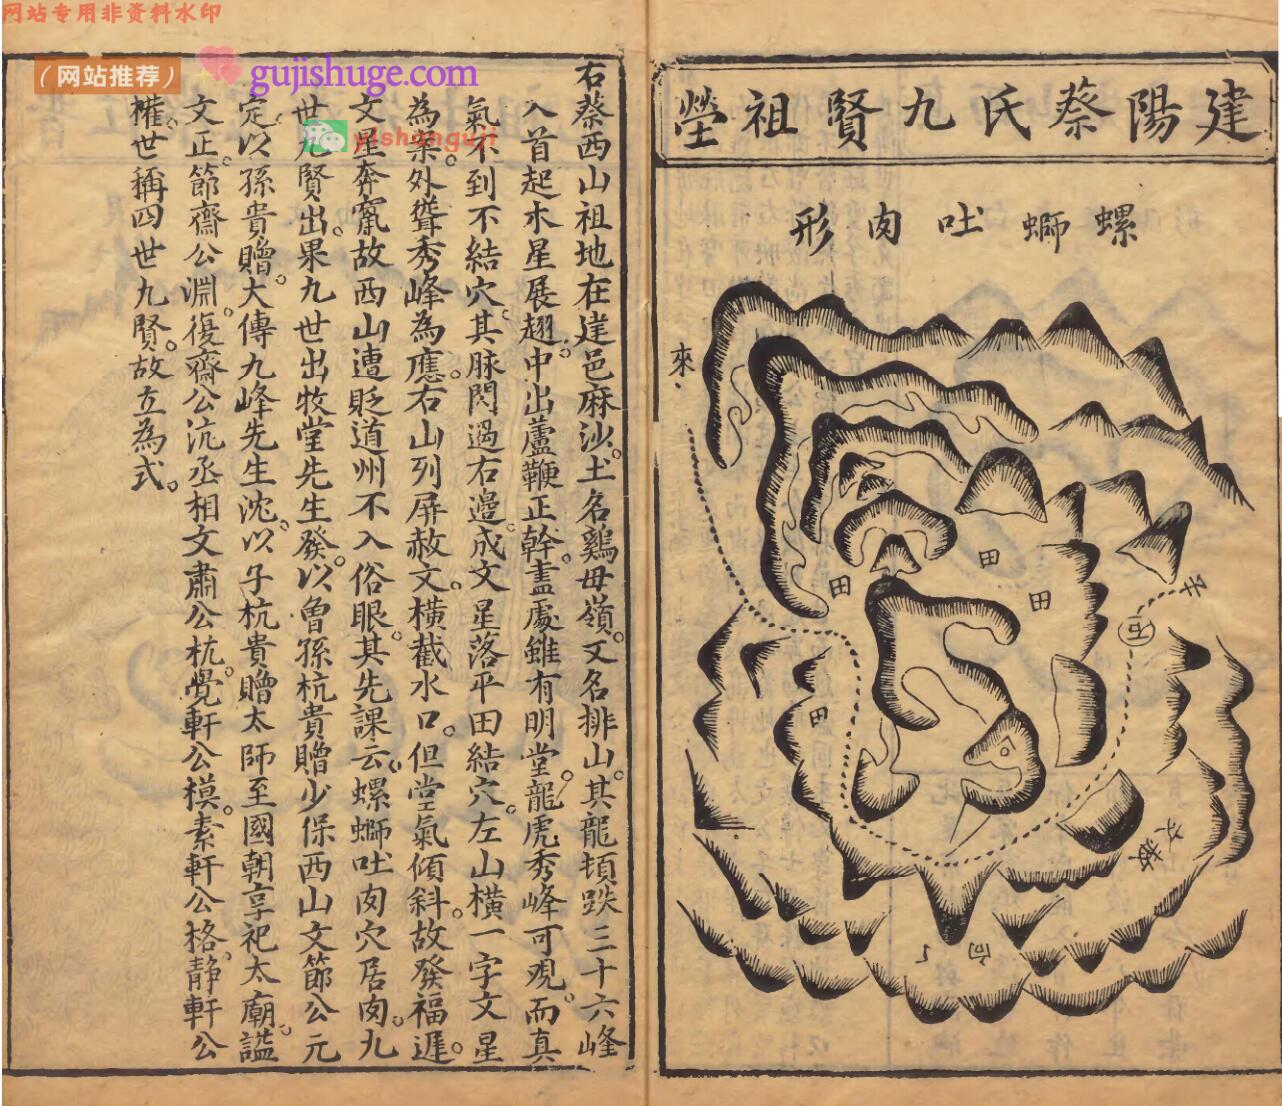 网站专用非资料水印
(网站推荐)
gujishuge.com
yishanguji
建陽蔡氏九賢祖塋
螺螄吐肉形
來
田
田
田
田
向
右蔡西山祖地在建邑麻沙土名鷄母嶺又名排山其龍頓跌三十六峰
入首起木星展翅中出蘆鞭正幹盡處雖有明堂龍虎秀峰可观而真
氣不到不結穴其脉閃過右邊成文星落平田結穴左山橫一字文星
為案外聳秀峰為應右山列屏赦文橫截水口但堂氣傾斜故發福遲
文星奔竄故西山遭貶道州不入俗眼其先課云螺螄吐肉穴居肉九
世九賢出果九世出牧堂先生發以曾孫杭貴贈少保西山文節公元
定以孫貴贈大傳九峰先生沈以子杭貴贈太師至國朝享祀太廟謚
文正節齋公淵復齋公沆丞相文肅公杭覺軒公模素軒公格靜軒公
權世稱四世九賢故立為式